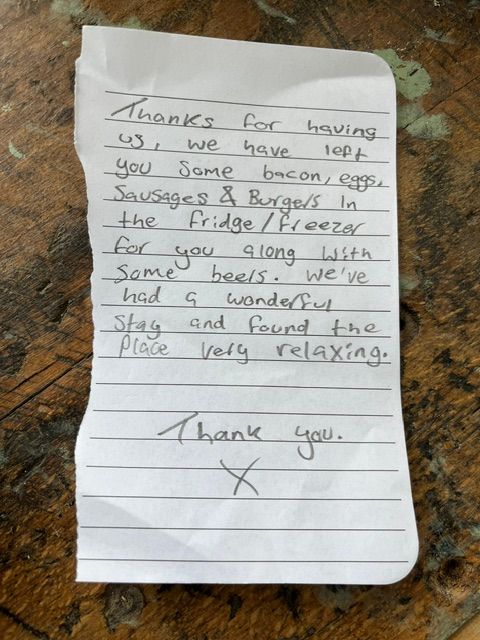 Thanks for having
us, we have left
you some bacon, eggs,
Sausages & Burgers In
the fridge/freezer
for you along with
Some beers. We've
had a wonderful
Stay and found the
Place very relaxing.
Thank you.
X